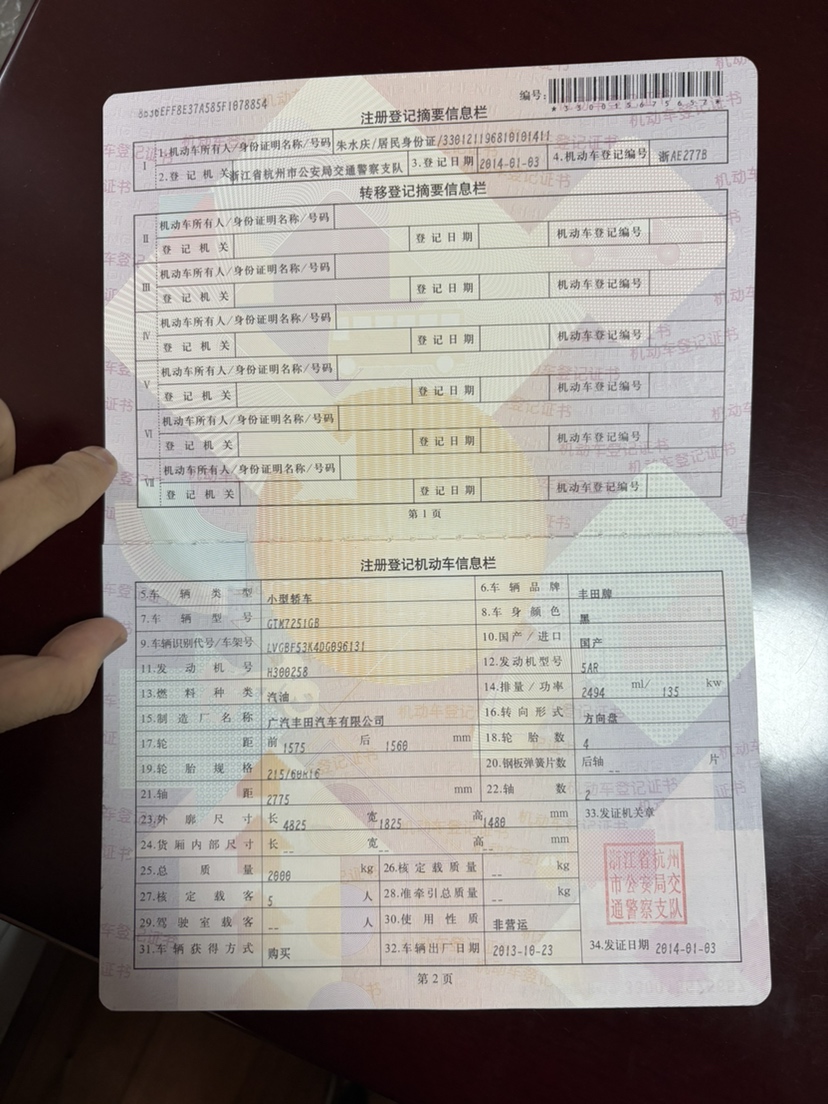 编号:
注册登记摘要信息栏
Ⅰ 1.机动车所有人/身份证明名称/号码 朱水庆/居民身份证/330121196810101411
2.登记机关 浙江省杭州市公安局交通警察支队 3.登记日期 2014-01-03 4.机动车登记编号 浙AE277B
转移登记摘要信息栏
Ⅱ 机动车所有人/身份证明名称/号码
登记机关 登记日期 机动车登记编号
Ⅲ 机动车所有人/身份证明名称/号码
登记机关 登记日期 机动车登记编号
Ⅳ 机动车所有人/身份证明名称/号码
登记机关 登记日期 机动车登记编号
Ⅴ 机动车所有人/身份证明名称/号码
登记机关 登记日期 机动车登记编号
Ⅵ 机动车所有人/身份证明名称/号码
登记机关 登记日期 机动车登记编号
Ⅶ 机动车所有人/身份证明名称/号码
登记机关 登记日期 机动车登记编号
第1页
注册登记机动车信息栏
5.车辆类型 小型轿车 6.车辆品牌 丰田牌
7.车辆型号 GTM7251GB 8.车身颜色 黑
9.车辆识别代号/车架号 LVGBF53K4DG096131 10.国产/进口 国产
11.发动机号 H300258 12.发动机型号 5AR
13.燃料种类 汽油 14.排量/功率 2494 ml/ 135 kw
15.制造厂名称 广汽丰田汽车有限公司 16.转向形式 方向盘
17.轮距 前 1575 后 1560 mm 18.轮胎数 4
19.轮胎规格 215/60R16 20.钢板弹簧片数 后轴 -- 片
21.轴距 2775 mm 22.轴数 2
23.外廓尺寸 长 4825 宽 1825 高 1480 mm 33.发证机关章
24.货厢内部尺寸 长 -- 宽 -- 高 -- mm
25.总质量 2000 kg 26.核定载质量 -- kg
27.核定载客 5 人 28.准牵引总质量 -- kg
29.驾驶室载客 -- 人 30.使用性质 非营运
浙江省杭州
市公安局交
通警察支队
31.车辆获得方式 购买 32.车辆出厂日期 2013-10-23 34.发证日期 2014-01-03
第2页